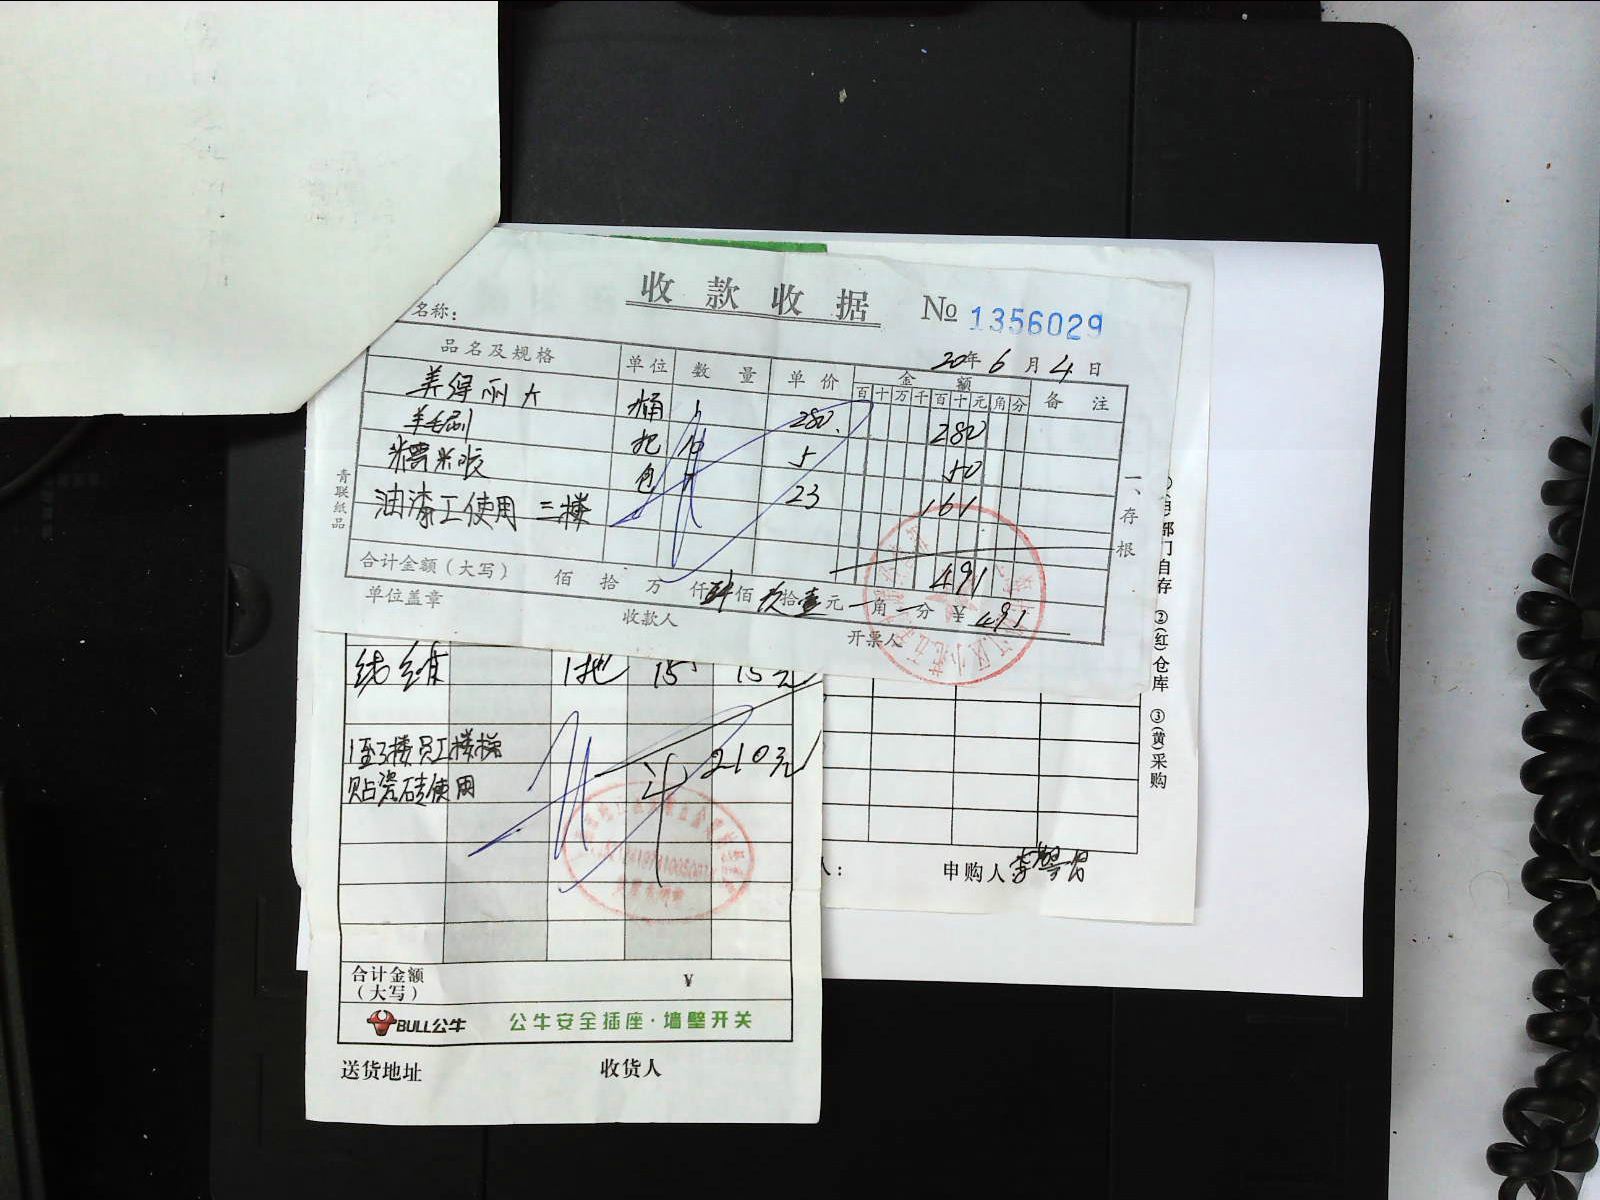 收款收据 № 1356029
名称：
20年 6 月 4 日
品名及规格 单位 数量 单价 金额 备注
百 十 万 千 百 十 元 角 分
美得丽大 桶 1 280. 280
羊毛刷 把 10 5 50
糯米胶 包 7 23 161
油漆工使用 三楼
491
合计金额（大写） 佰 拾 万 仟 肆佰 玖拾壹元 一角 一分 ¥ 491
单位盖章 收款人 开票人
青联纸品
一、存根
部门自存 ②(红)仓库 ③(黄)采购
1把 15 15元
1至3楼员工楼梯
贴瓷砖使用
210元
合计金额
（大写） ¥
BULL公牛 公牛安全插座·墙壁开关
送货地址 收货人
申购人